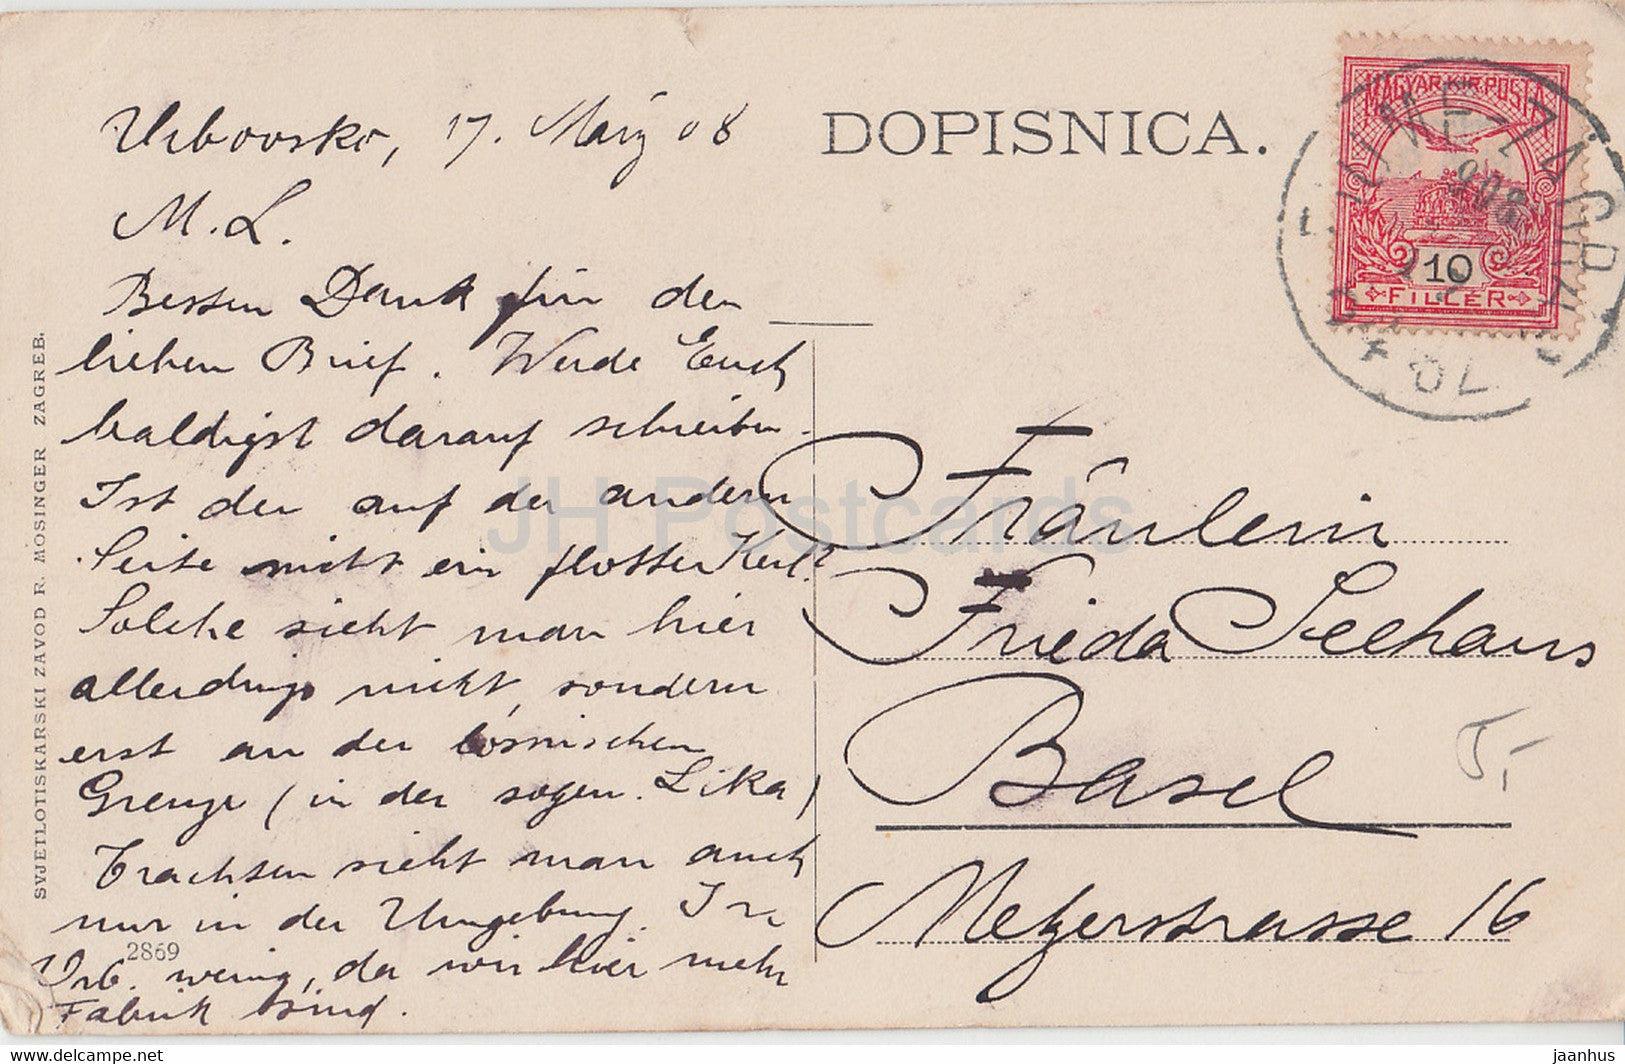 DOPISNICA.
Vrbovsko, 17. März 08
M. L.
Besten Dank für den
lieben Brief. Werde Euch
baldigst darauf schreiben.
Ist der auf der andern
Seite nicht ein flotter Kerl?
Solche sieht man hier
allerdings nicht, sondern
erst an der bosnischen
Grenze (in der sogen. Lika)
Trachten sieht man auch
nur in der Umgebung. In
Vrb. wenig, da wir hier mehr
Fabrik sind.
2869
SVJETLOTISKARSKI ZAVOD R. MOSINGER ZAGREB.
MAGYAR KIR. POSTA
10
FILLÉR
908
Fräulein
Frieda Seehaus
Basel
Metzerstrasse 16
5,-
JH Postcards
https://www.delcampe.net
jaanhus